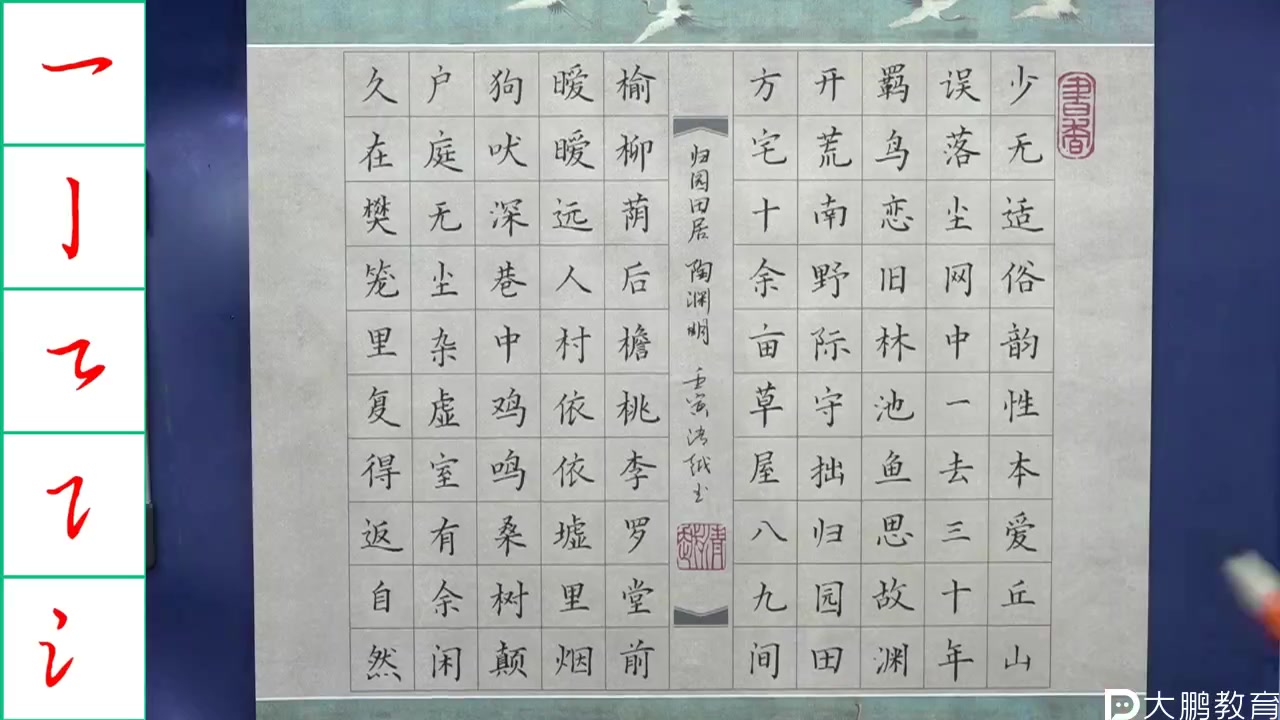 少无适俗韵性本爱丘山
误落尘网中一去三十年
羁鸟恋旧林池鱼思故渊
开荒南野际守拙归园田
方宅十余亩草屋八九间
归园田居 陶渊明 壬寅
榆柳荫后檐桃李罗堂前
暧暧远人村依依墟里烟
狗吠深巷中鸡鸣桑树颠
户庭无尘杂虚室有余闲
久在樊笼里复得返自然
書香
大鹏教育